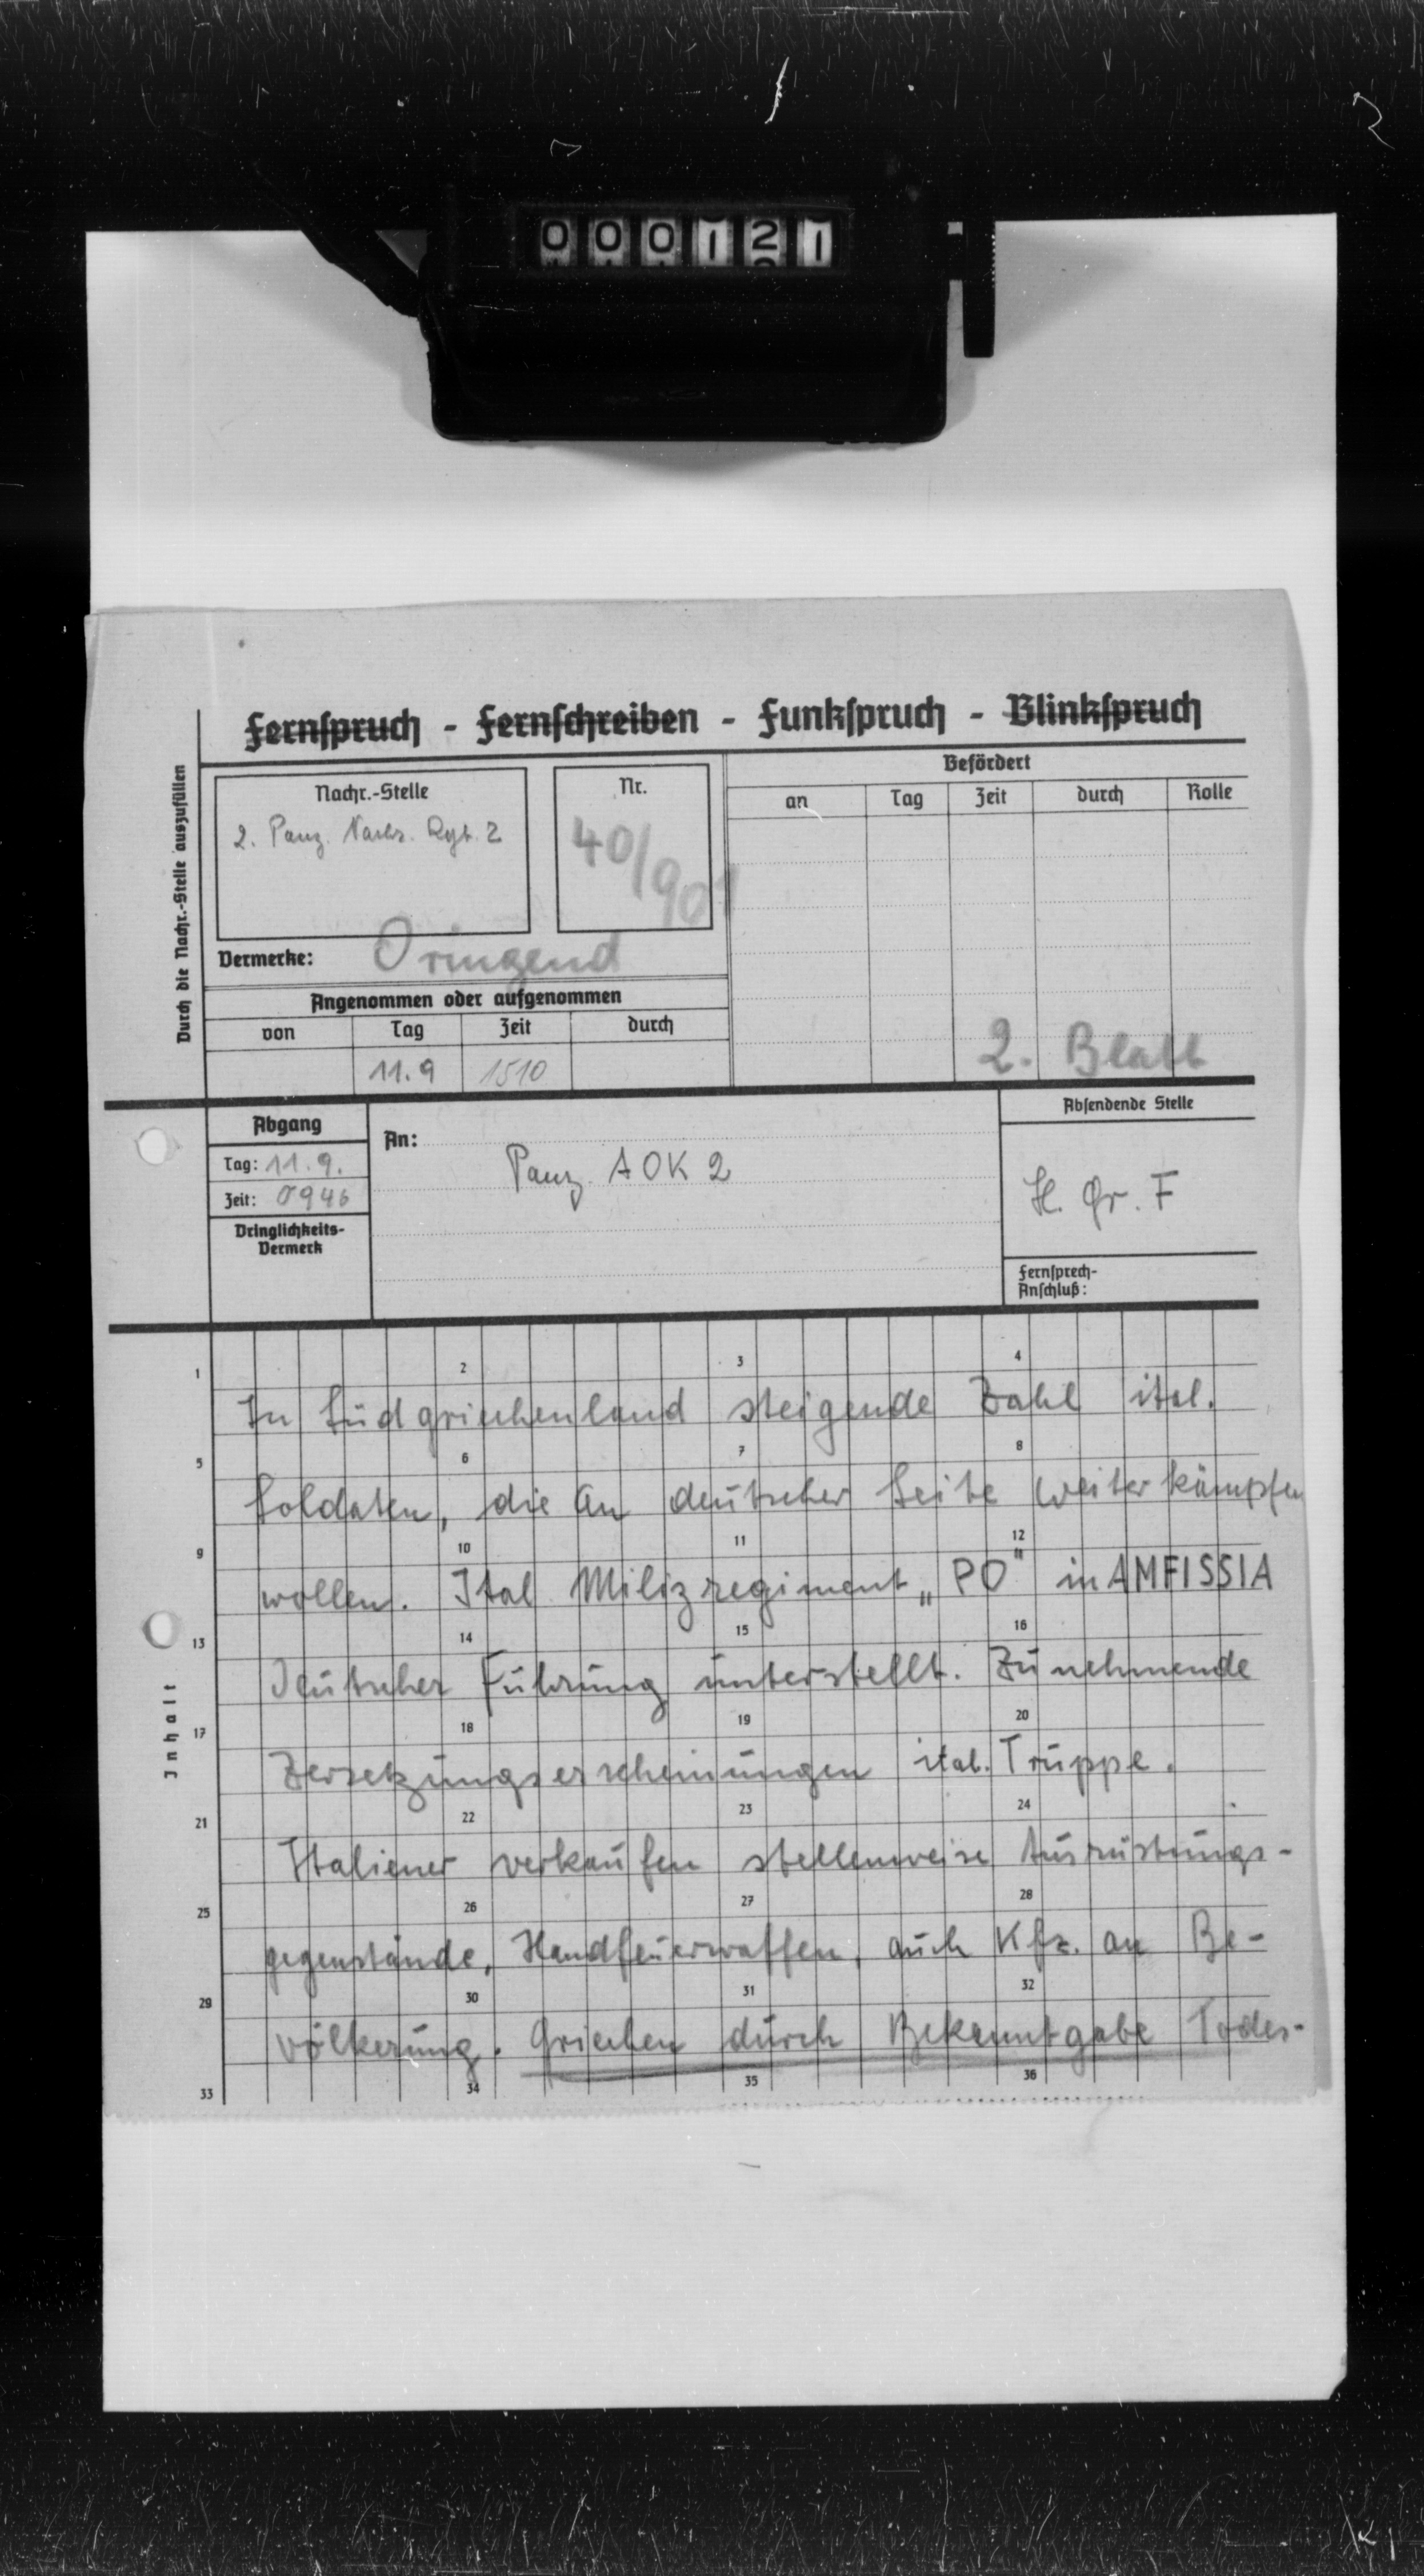 000121
Fernspruch - Fernschreiben - Funkspruch - Blinkspruch
Durch die Nachr.-Stelle auszufüllen
Nachr.-Stelle
2. Panz. Nachr. Rgt. 2
Nr.
40/901
Befördert
an Tag Zeit durch Rolle
Vermerke: Dringend
Angenommen oder aufgenommen
von Tag Zeit durch
11.9 1510
2. Blatt
Abgang
Tag: 11.9.
Zeit: 0946
Dringlichkeits-
Vermerk
An:
Panz. AOK 2
Absendende Stelle
H. Gr. F
Fernsprech-
Anschluß:
Inhalt
1 2 3 4
In Südgriechenland steigende Zahl ital.
5 6 7 8
Soldaten, die an deutscher Seite weiterkämpfen
9 10 11 12
wollen. Ital. Milizregiment „PO" in AMFISSIA
13 14 15 16
deutscher Führung unterstellt. Zunehmende
17 18 19 20
Zersetzungserscheinungen ital. Truppe.
21 22 23 24
Italiener verkaufen stellenweise Ausrüstungs-
25 26 27 28
gegenstände, Handfeuerwaffen, auch Kfz. an Be-
29 30 31 32
völkerung. Griechen durch Bekanntgabe Todes-
33 34 35 36